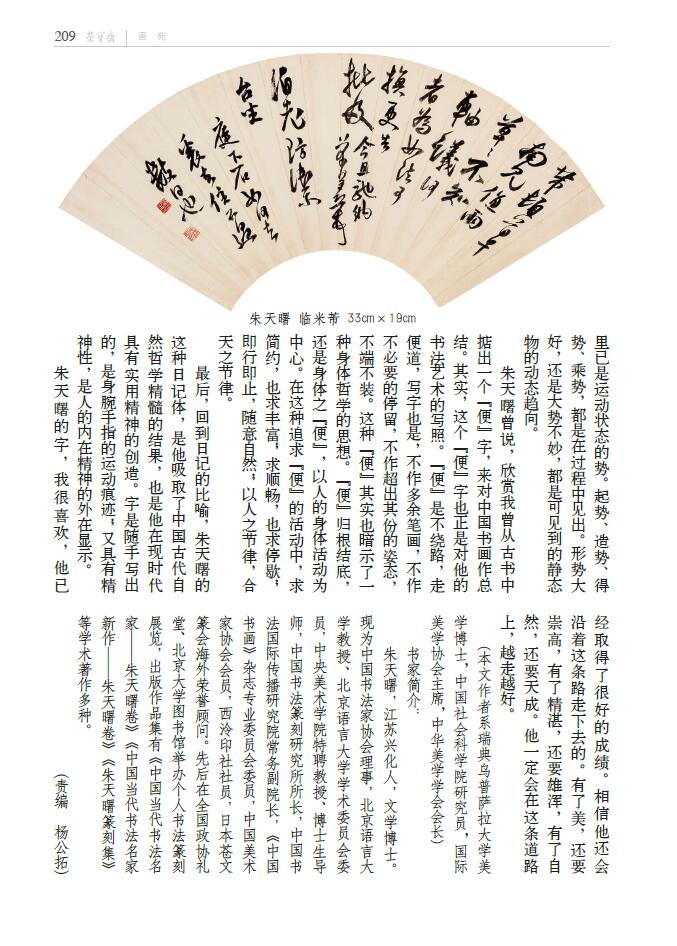 209 荣宝斋 画苑
朱天曙 临米芾 33cm×19cm
里已是运动状态的势。起势、造势、得
势、乘势，都是在过程中见出。形势大
好，还是大势不妙，都是可见到的静态
物的动态趋向。
朱天曙曾说，欣赏我曾从古书中
掂出一个『便』字，来对中国书画作总
结。其实，这个『便』字也正是对他的
书法艺术的写照。『便』是不绕路，走
便道，写字也是，不作多余笔画，不作
不必要的停留，不作超出其份的姿态，
不端不装。这种『便』其实也暗示了一
种身体哲学的思想。『便』归根结底，
还是身体之『便』，以人的身体活动为
中心。在这种追求『便』的活动中，求
简约，也求丰富，求顺畅，也求停歇，
即行即止，随意自然；以人之节律，合
天之节律。
最后，回到日记的比喻，朱天曙的
这种日记体，是他吸取了中国古代自
然哲学精髓的结果，也是他在现时代
具有实用精神的创造。字是随手写出
的，是身腕手指的运动痕迹；又具有精
神性，是人的内在精神的外在显示。
朱天曙的字，我很喜欢，他已
经取得了很好的成绩。相信他还会
沿着这条路走下去的。有了美，还要
崇高，有了精湛，还要雄浑，有了自
然，还要天成。他一定会在这条道路
上，越走越好。
（本文作者系瑞典乌普萨拉大学美
学博士，中国社会科学院研究员，国际
美学协会主席，中华美学学会会长）
书家简介：
朱天曙，江苏兴化人，文学博士。
现为中国书法家协会理事，北京语言大
学教授、北京语言大学学术委员会委
员，中央美术学院特聘教授、博士生导
师，中国书法篆刻研究所所长，中国书
法国际传播研究院常务副院长，《中国
书画》杂志专业委员会委员，中国美术
家协会会员，西泠印社社员，日本苍文
篆会海外荣誉顾问。先后在全国政协礼
堂、北京大学图书馆举办个人书法篆刻
展览，出版作品集有《中国当代书法名
家——朱天曙卷》《中国当代书法名家
新作——朱天曙卷》《朱天曙篆刻集》
等学术著作多种。
（责编 杨公拓）